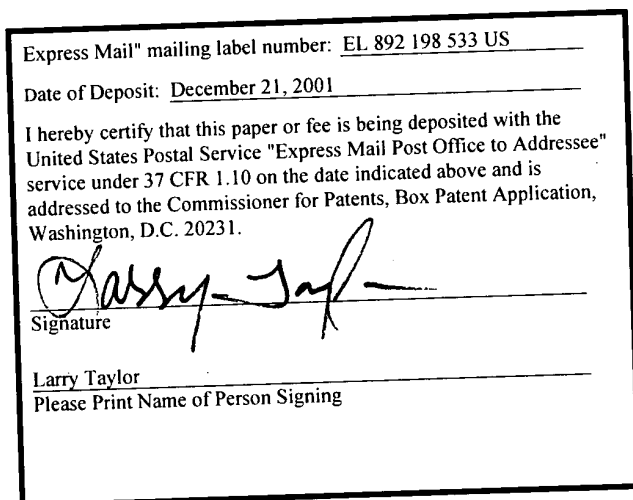 Express Mail" mailing label number: EL 892 198 533 US
Date of Deposit: December 21, 2001
I hereby certify that this paper or fee is being deposited with the
United States Postal Service "Express Mail Post Office to Addressee"
service under 37 CFR 1.10 on the date indicated above and is
addressed to the Commissioner for Patents, Box Patent Application,
Washington, D.C. 20231.
Larry Taylor
Signature
Larry Taylor
Please Print Name of Person Signing